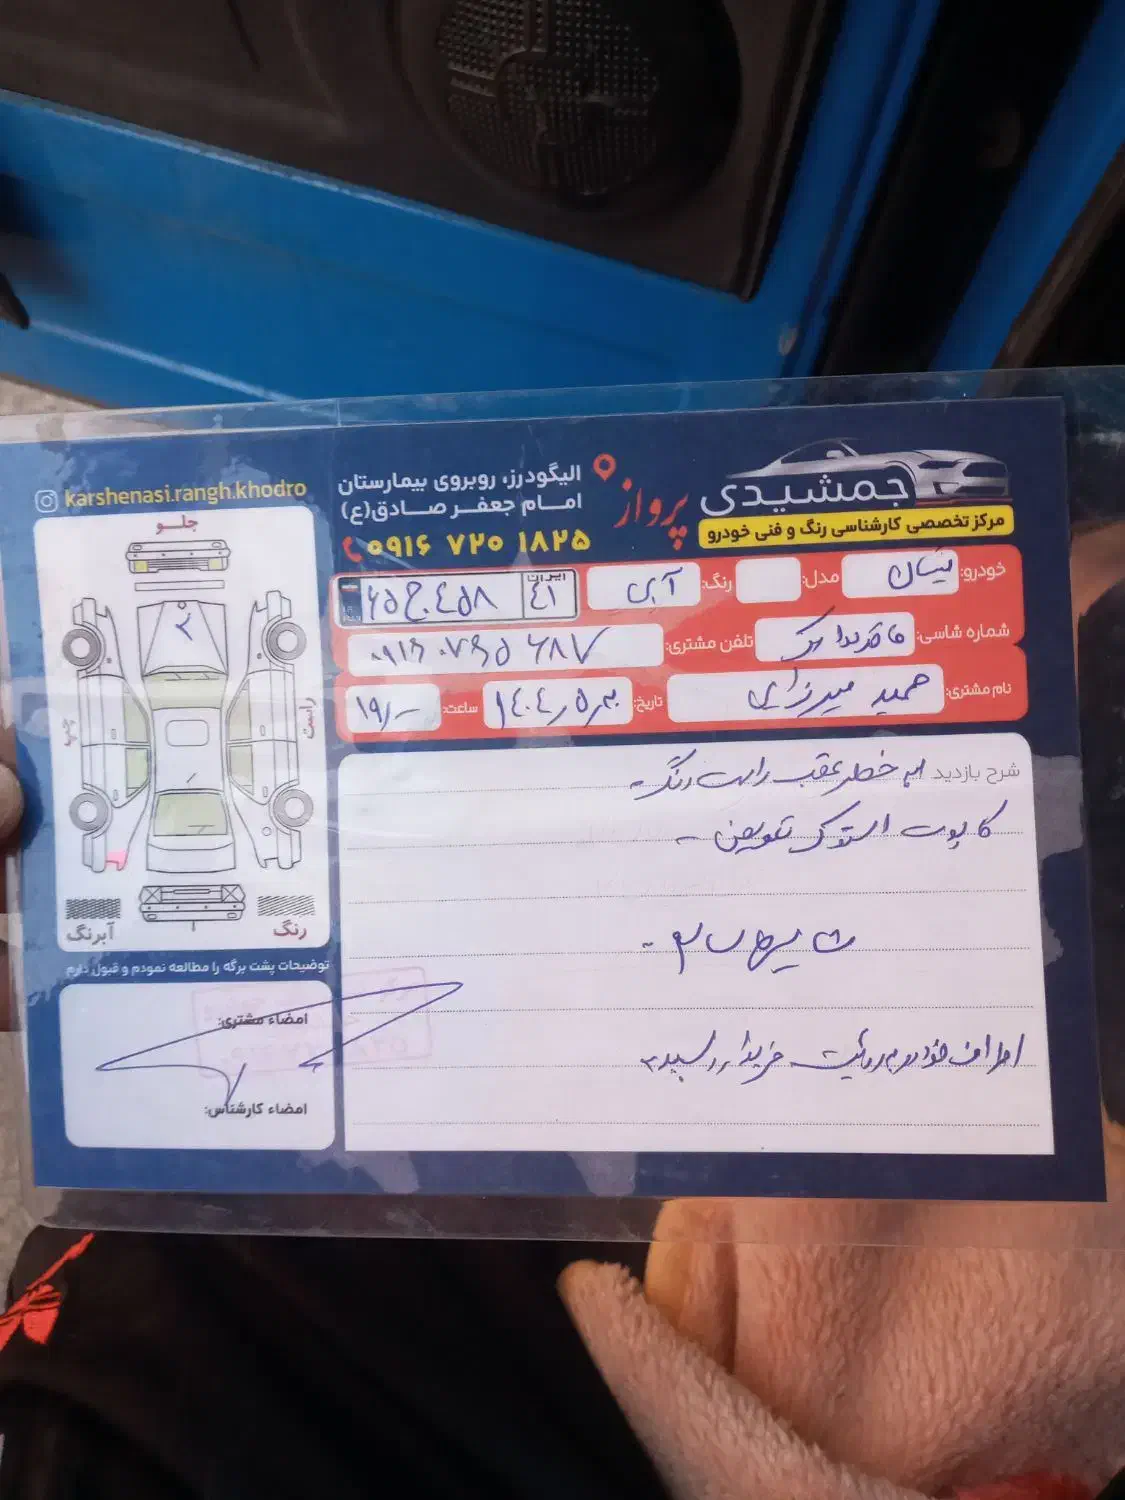 جمشیدی
پرواز
مرکز تخصصی کارشناسی رنگ و فنی خودرو
الیگودرز، روبروی بیمارستان
امام جعفر صادق(ع)
۰۹۱۶ ۷۲۰ ۱۸۲۵
karshenasi.rangh.khodro
خودرو: نیسان مدل: رنگ: آبی
ایران ۴۱
شماره شاسی: تلفن مشتری:
نام مشتری: حمید میرزایی تاریخ: ۱۴۰۴٫۵٫ ساعت: ۱۹٫-
شرح بازدید عقب راست رنگ-
کاپوت استوک تعویض -
اطراف خودرو به رویت خریدار رسید
جلو
چپ
راست
رنگ
آبرنگ
توضیحات پشت برگه را مطالعه نمودم و قبول دارم
امضاء مشتری:
امضاء کارشناس: